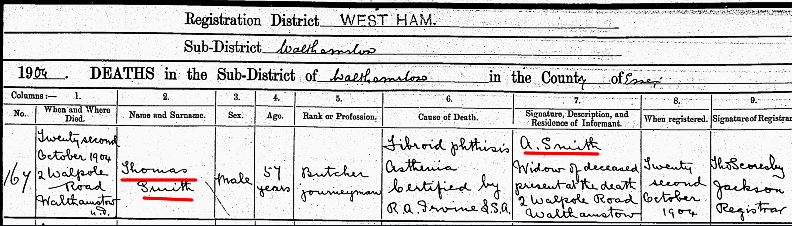 Registration District WEST HAM.
Sub-District Walthamstow
1904. DEATHS in the Sub-District of Walthamstow in the County of Essex
Columns:— 1. 2. 3. 4. 5. 6. 7. 8. 9.
No. When and Where Died. Name and Surname. Sex. Age. Rank or Profession. Cause of Death. Signature, Description, and Residence of Informant. When registered. Signature of Registrar
167 Twenty second October 1904 2 Walpole Road Walthamstow U.D.
Thomas Smith
Male
57 years
Butcher journeyman
Fibroid phthisis
Asthenia
Certified by
R.A. Irvine L.S.A.
A. Smith
Widow of deceased
present at the death
2 Walpole Road
Walthamstow
Twenty second October 1904
Tho Scoresby Jackson Registrar